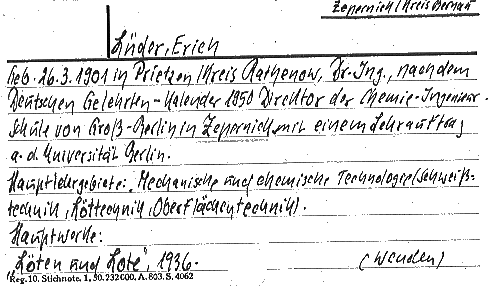 Zepernich/Kreis Bernau
Lüder, Erich
Geb. 26.3.1901 in Prietzen/Kreis Rathenow, Dr.-Ing., nach dem
Deutschen Gelehrten-Kalender 1950 Direktor der Chemie-Ingenieur-
schule von Groß-Berlin in Zepernich, mit einem Lehrauftrag
a. d. Universität Berlin.
Hauptlehrgebiete: Mechanische und chemische Technologie (Schweiß-
technik, Löttechnik, Oberflächentechnik).
Hauptwerke:
„Löten und Lote", 1936.
(Wenden)
Reg. 10. Stichnote. 1, 50. 232 000. A. 803. S. 4062